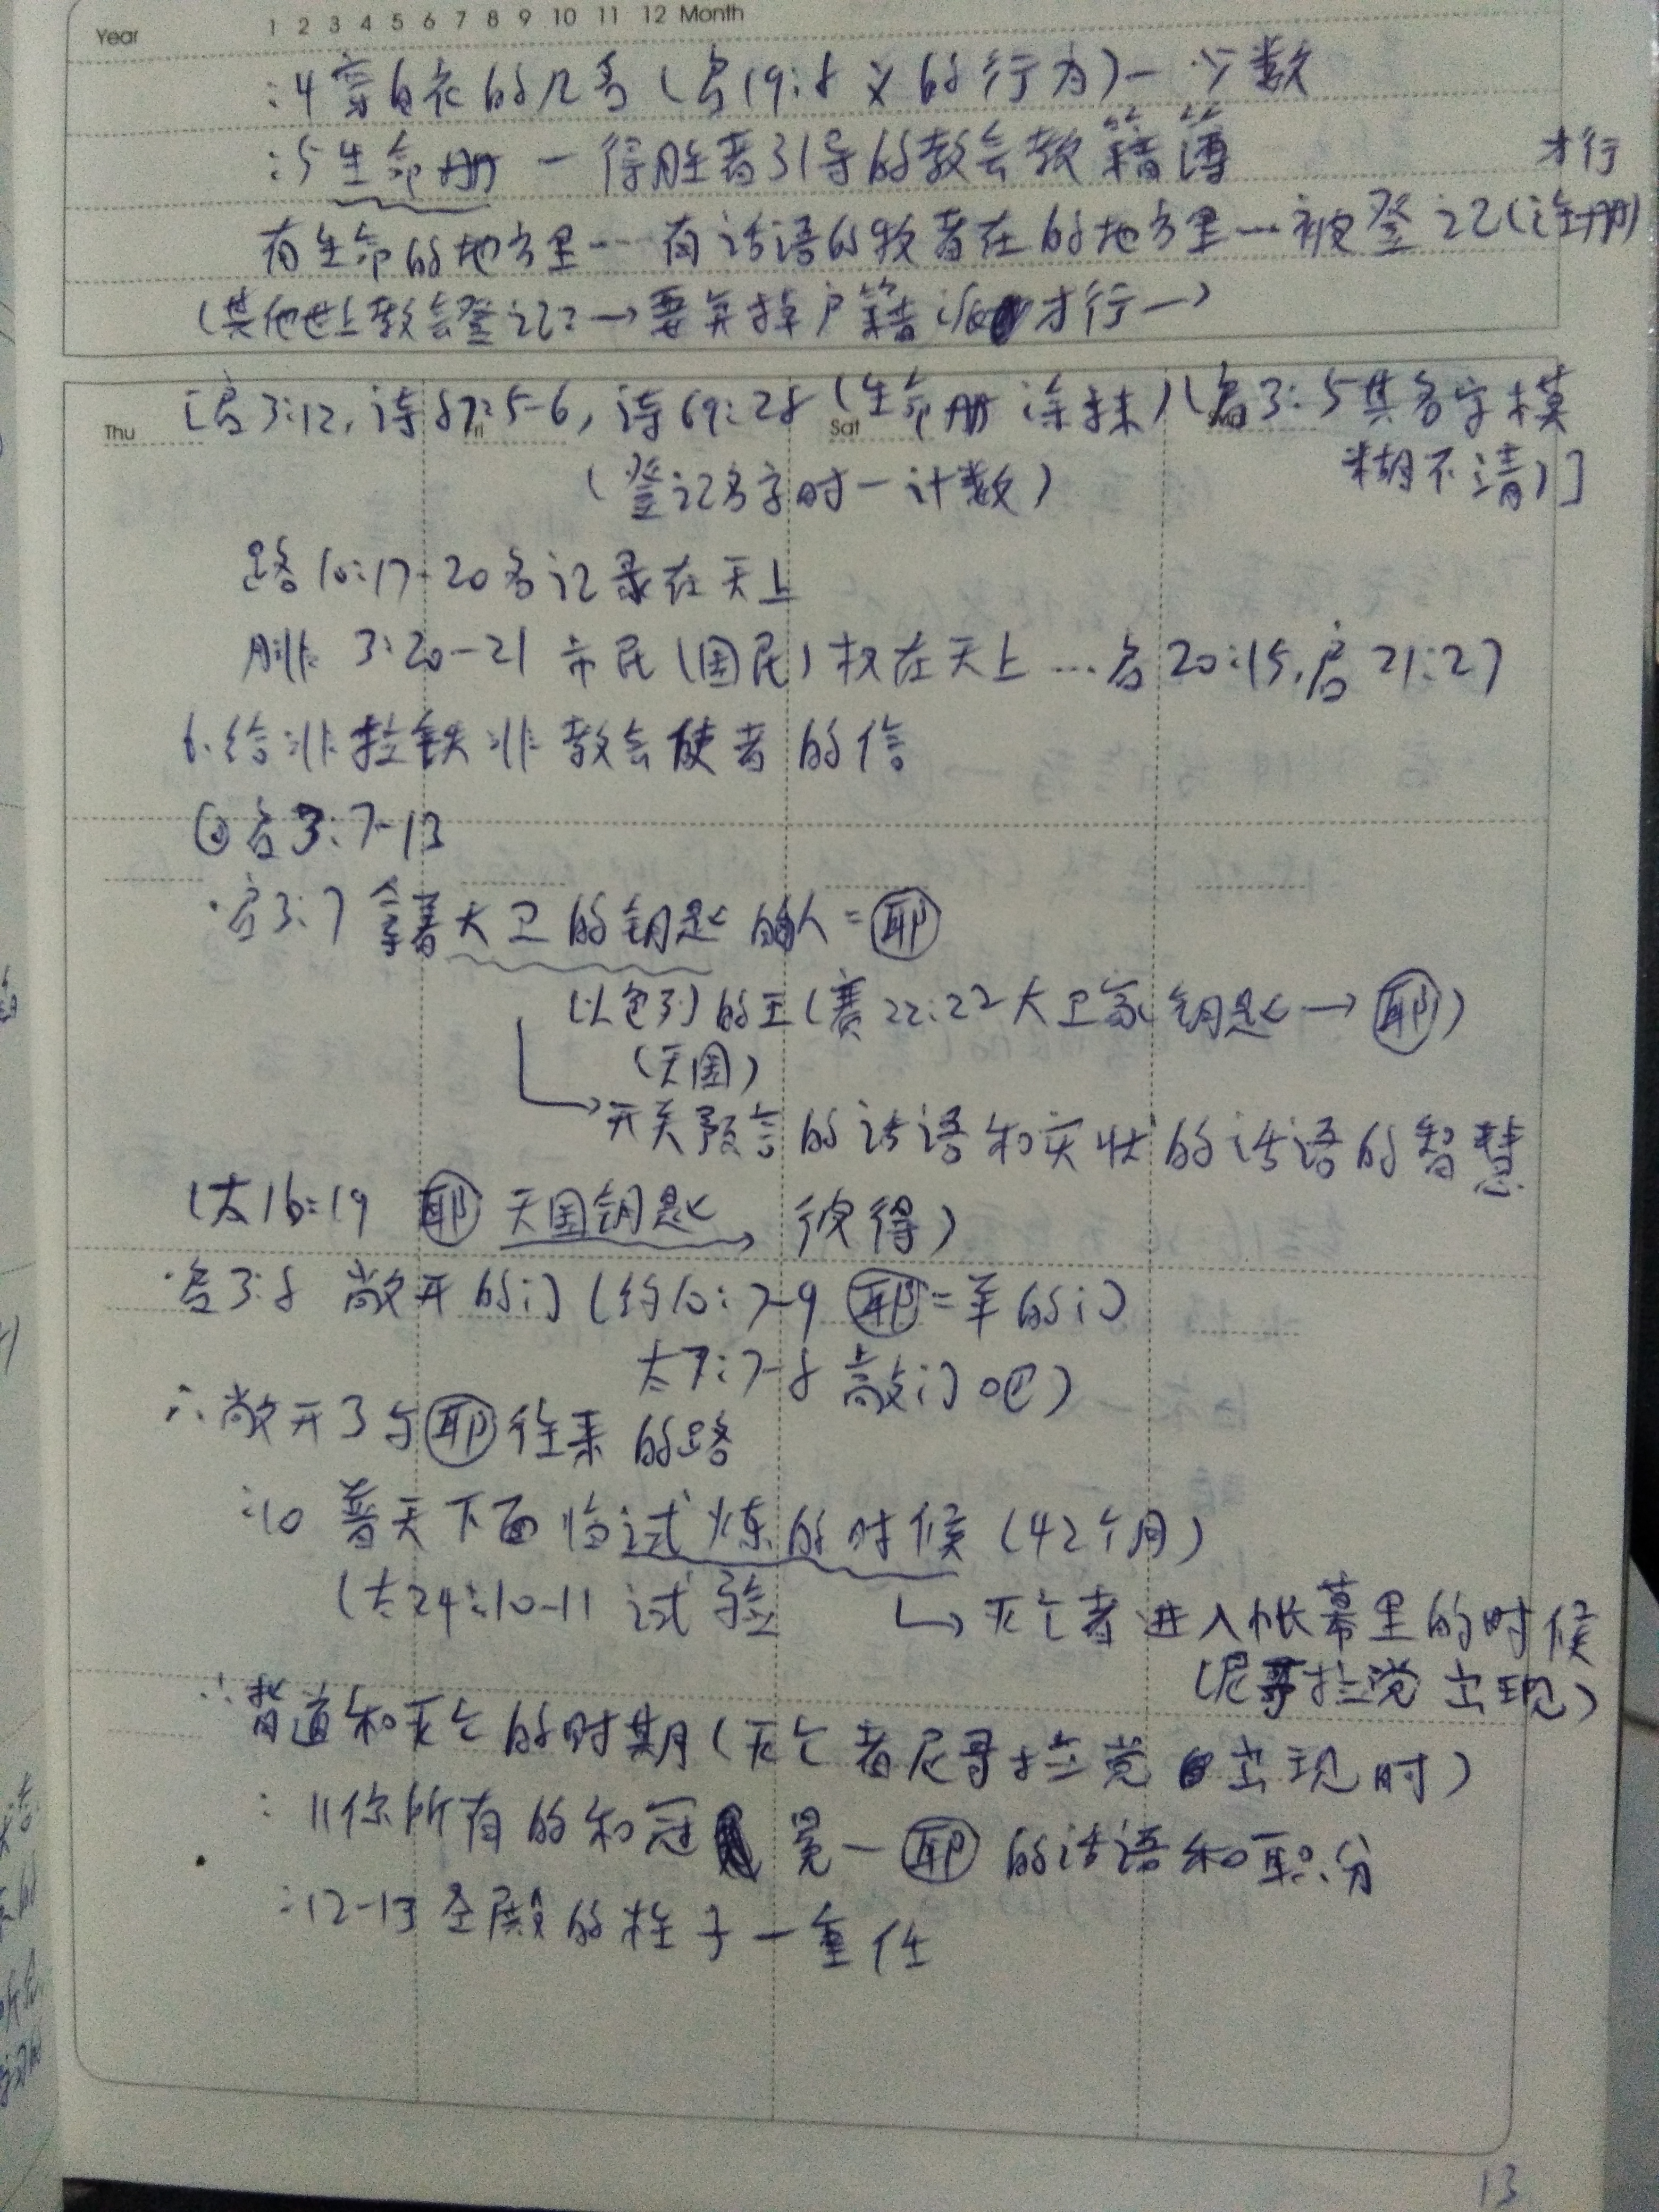 Year 1 2 3 4 5 6 7 8 9 10 11 12 Month
:4 穿白衣的几名 (启19:8 义的行为) — 少数
:5 生命册 — 得胜者引导的教会教籍簿
才行
有生命的地方里…有话语的牧者在的地方里…被登记(注册)
(其他世上教会登记? → 要弃掉户籍 才行 →)
Thu Fri Sat
[启3:12, 诗87:5-6, 诗69:28 (生命册 涂抹) (启3:5其名字模
糊不清)]
(登记名字时—计数)
路10:17-20名记录在天上
腓 3:20-21 市民(国民)权在天上 … 启20:15, 启21:27
6. 给非拉铁非教会使者的信
启3:7-13
·启3:7 拿着大卫的钥匙的人=耶
以色列的王(赛22:22大卫家钥匙→耶)
(天国)
→开关预言的话语和实状的话语的智慧
(太16:19 耶 天国钥匙→ 彼得)
·启3:8 敞开的门 (约10:7-9 耶=羊的门
太7:7-8 敲门吧)
∴敞开了与耶往来的路
:10 普天下面临试炼的时候 (42个月)
(太24:10-11 试验 ↳灭亡者进入帐幕里的时候
(尼哥拉党出现)
∴背道和灭亡的时期(灭亡者尼哥拉党出现时)
:11你所有的和冠冕—耶的话语和职分
:12-13圣殿的柱子—重任
13